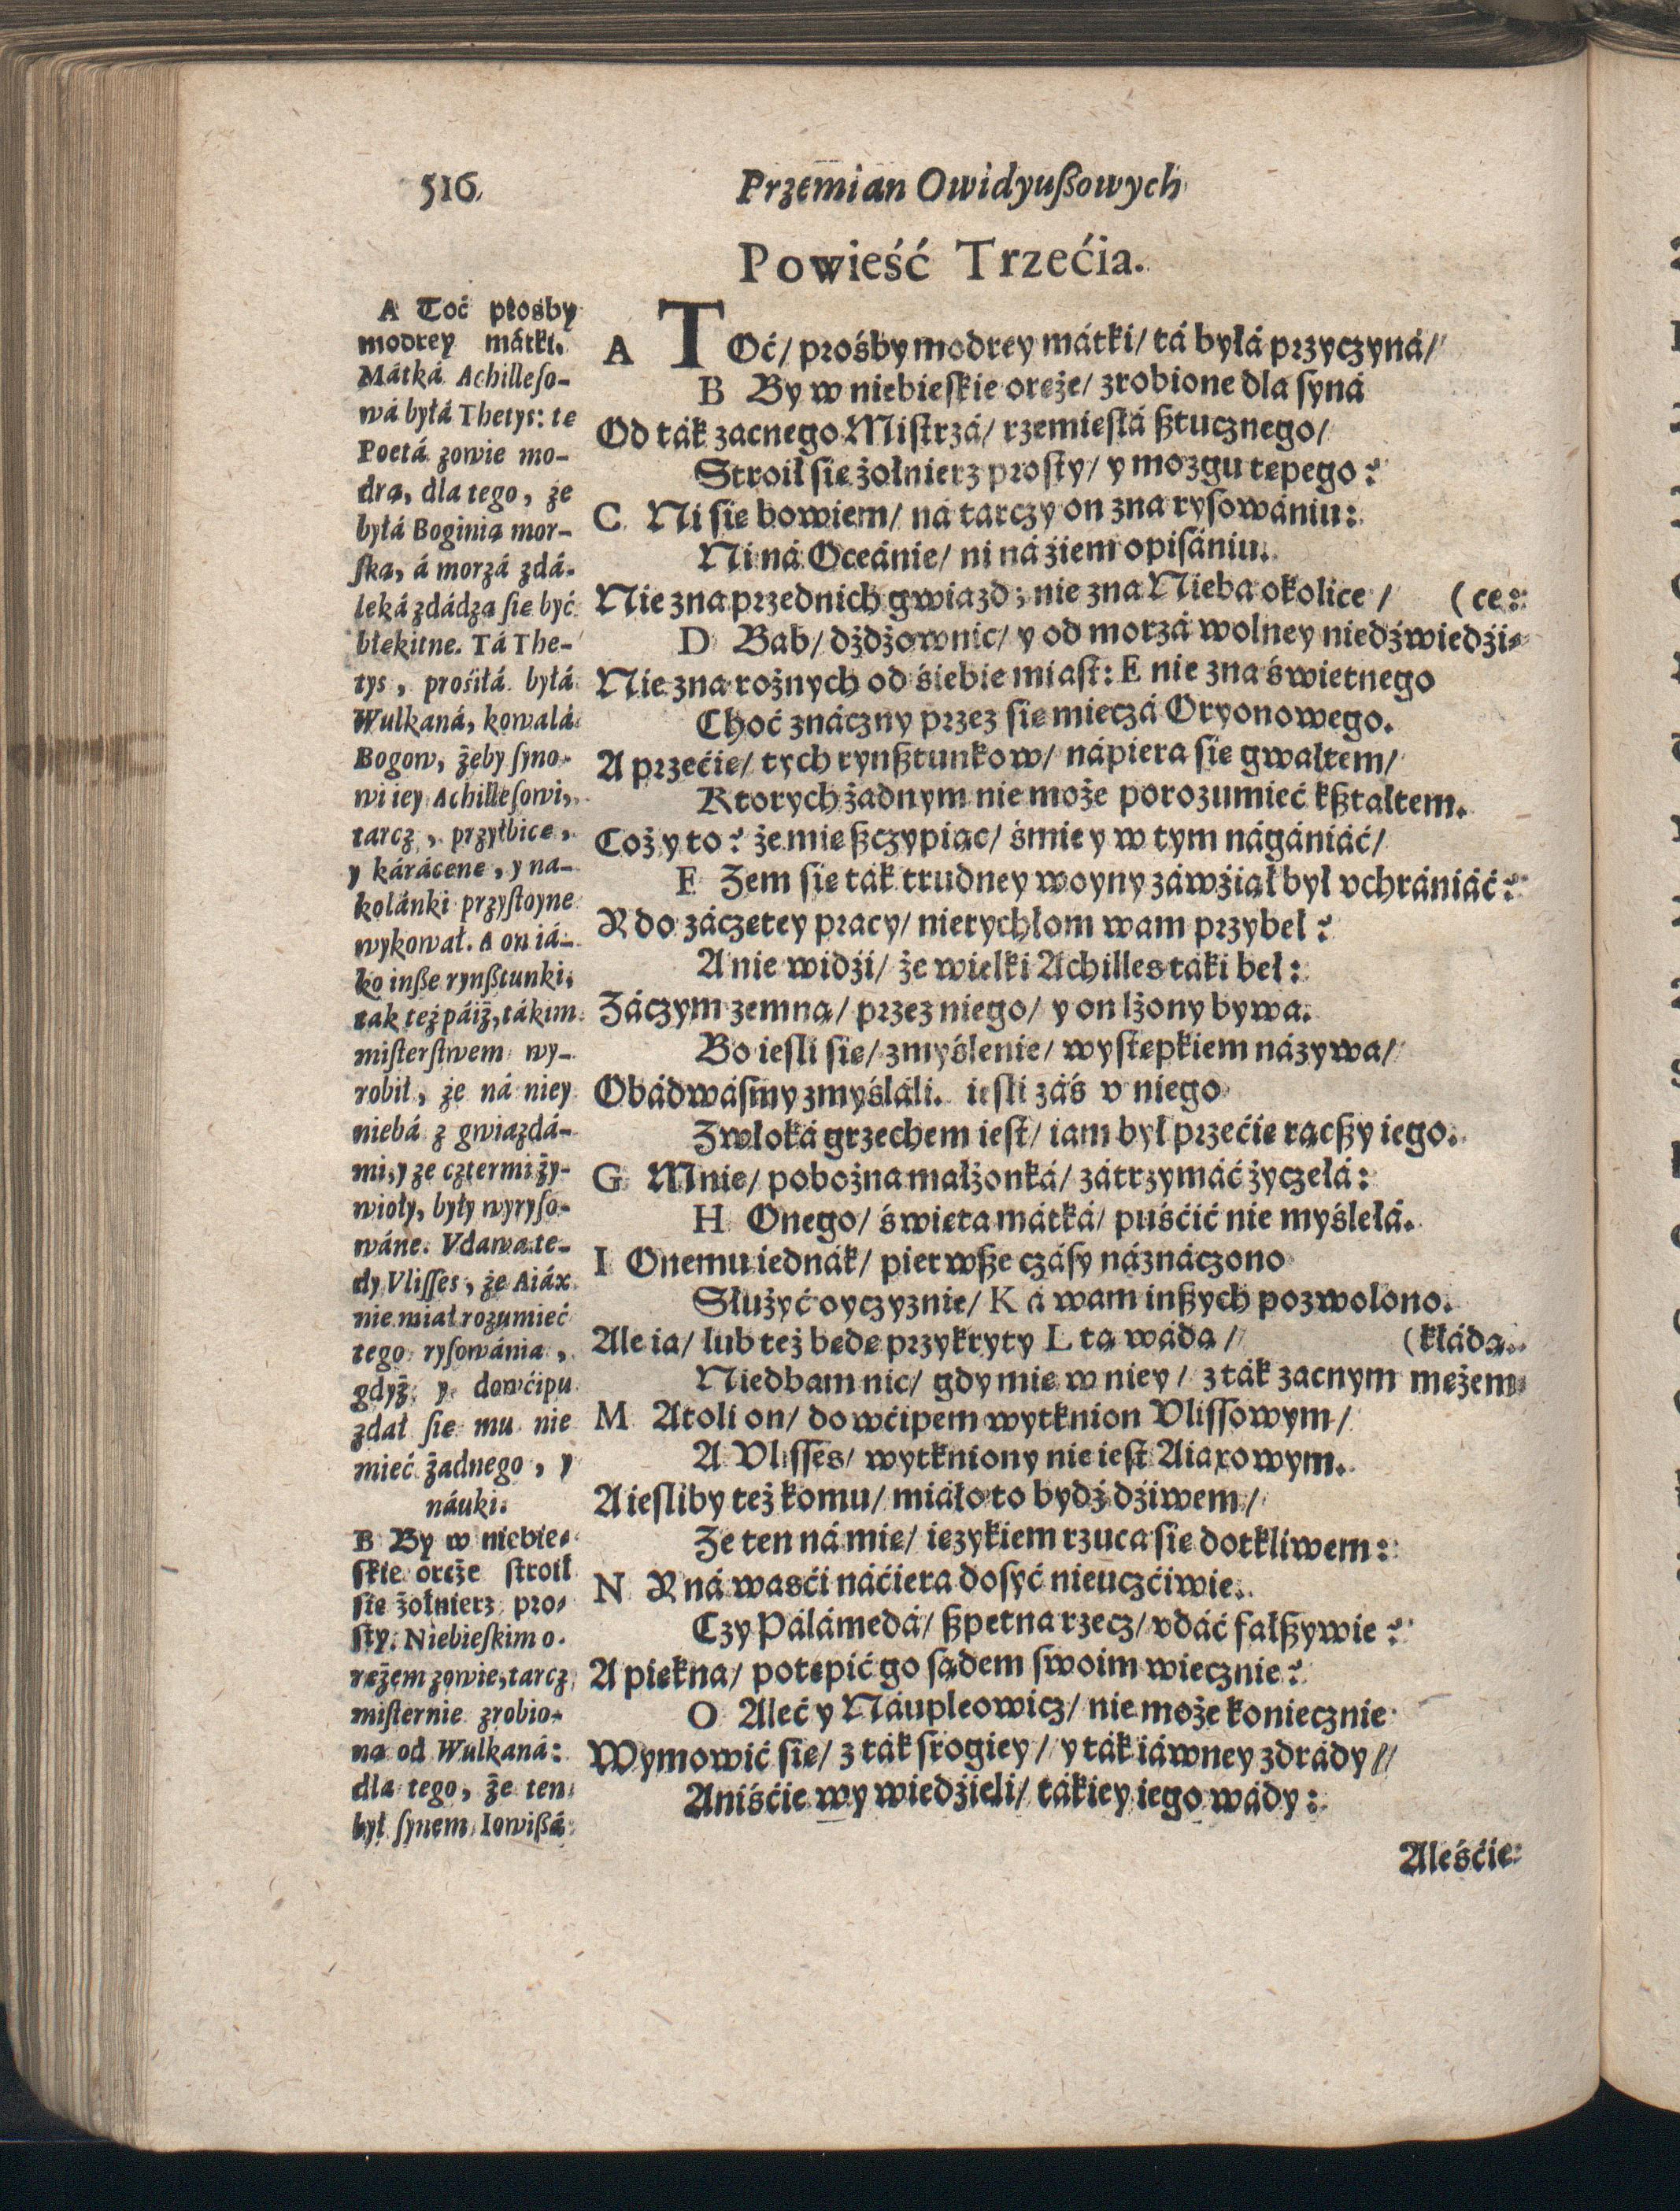 516
Przemian Owidyußowych
Powieść Trzećia.
A Toć prośby
modrey mátki.
Mátká Achilleſo-
wá byłá Thetys: te
Poetá zowie mo-
drą, dla tego, że
byłá Boginią mor-
ſką, á morzá zdá-
leká zdádzą ſie być
błekitne. Tá The-
tys, prośiłá byłá
Wulkaná, kowalá
Bogow, żeby ſyno-
wi iey Achilleſowi,
tarcz, przyłbice,
y kárácene, y na-
kolánki przyſtoyne
wykował. A on iá-
ko inße rynßtunki,
tak też páiż, tákim
miſterſtwem wy-
robił, że ná niey
niebá z gwiazdá-
mi, y ze cztermi ży-
wioły, były wyryſo-
wáne. Vdawa te-
dy Vliſſes, że Aiáx
nie miał rozumieć
tego ryſowánia,
gdyż y dowćipu
zdał ſie mu nie
mieć żadnego, y
náuki.
B By w niebie-
ſkie oręże ſtroił
ſie żołnierz pro-
ſty. Niebieſkim o-
rężem zowie, tarcz
miſternie zrobio-
ną od Wulkaná:
dla tego, że ten
był ſynem Iowißá
A TOć/ prośby modrey mátki/ tá byłá przyczyná/
B By w niebieſkie oręże/ zrobione dla ſyná
Od ták zacnego Miſtrzá/ rzemieſłá ßtucznego/
Stroił ſie żołnierz proſty/ y mozgu tępego?
C Ni ſie bowiem/ ná tarczy on zna ryſowániu:
Ni ná Oceánie/ ni ná żiem opiſániu.
Nie zna przednich gwiazd; nie zna Nieba okolice/ (ce:
D Bab/ dżdżownic/ y od morzá wolney niedźwiedźi-
Nie zna rożnych od śiebie miaſt: E nie zna świetnego
Choć znáczny przez ſie mieczá Oryonowego.
A przećie/ tych rynßtunkow/ nápiera ſie gwałtem/
Ktorych żadnym nie może porozumieć kßtałtem.
Coż y to? że mie ßczypiąc/ śmie y w tym nágániáć/
F Zem ſie ták trudney woyny záwżiął był vchrániáć?
Y do záczętey pracy/ nierychłom wam przybeł?
A nie widźi/ że wielki Achilles táki beł:
Záczym zemną/ przez niego/ y on lżony bywa.
Bo ieſli ſie/ zmyślenie/ wyſtępkiem názywa/
Obádwáſmy zmyślali. ieſli záś v niego
Zwłoká grzechem ieſt/ iam był przećie rączßy iego.
G Mnie/ pobożna małżonká/ zátrzymáć życzełá:
H Onego/ święta mátká/ puśćić nie myślełá.
I Onemu iednák/ pierwße czáſy náznáczono
Służyć oyczyznie/ K á wam inßych pozwolono.
Ale ia/ lub też będę przykryty L tą wádą/ (kłádą.
Niedbam nic/ gdy mie w niey/ z ták zacnym mężem
M Atoli on/ dowćipem wytknion Vliſſowym/
A Vliſſes/ wytkniony nie ieſt Aiaxowym.
A ieſliby też komu/ miáło to bydź dźiwem/
Ze ten ná mie/ ięzykiem rzuca ſie dotkliwem:
N Y ná waśći náćiera dosyć nieuczćiwie.
Czy Pálámedá/ ßpetna rzecz/ vdáć fałßywie?
A piękna/ potępić go ſądem ſwoim wiecznie?
O Aleć y Náupleowicz/ nie może koniecznie
Wymowić ſie/ z ták ſrogiey/ y ták iáwney zdrády/
Aniśćie wy wiedźieli/ tákiey iego wády:
Aleśćie